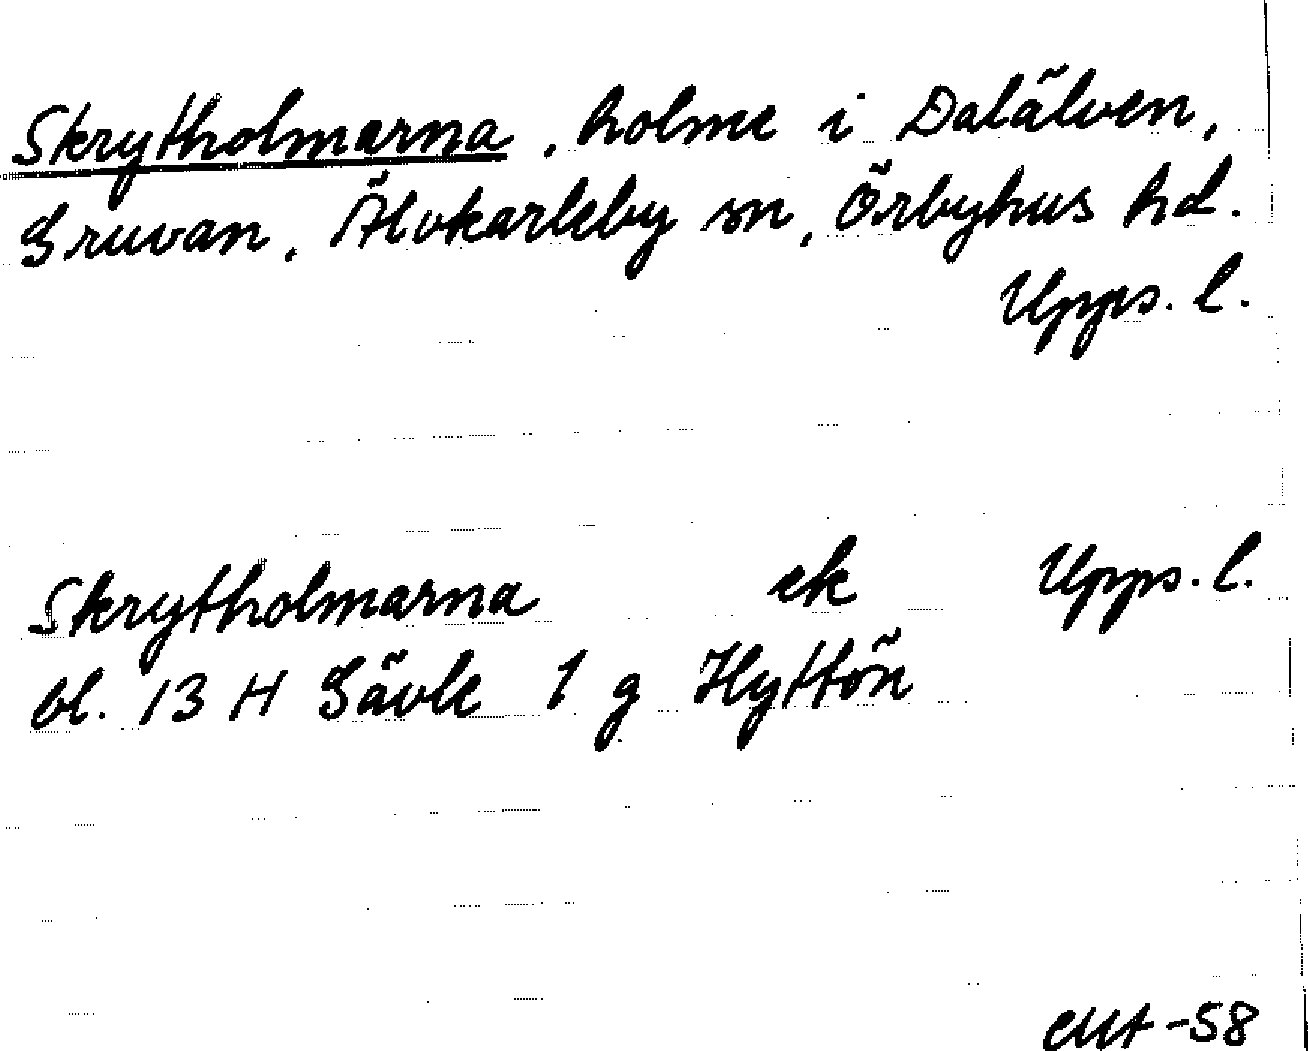 Skrytholmarna, holme i Dalälven,
Gruvan, Älvkarleby sn, Örbyhus hd.
Upps. l.
Skrytholmarna ek Upps. l.
bl. 13 H Gävle 1 g Hyttön
-58